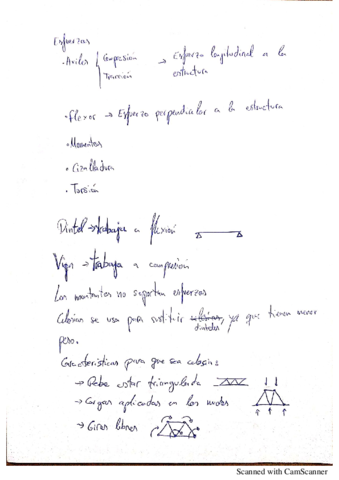 Esfuerzos
· Axiles { Compresión → Esfuerzo longitudinal a la
Tracción estructura
· flexor → Esfuerzo perpendicular a la estructura
· Momentos
· Cizalladura
· Torsión
Dintel → trabaja a flexión
Viga → trabaja a compresión
Los montantes no soportan esfuerzos
Celosías se usa para sustituir celosías, ya que tienen menor
dinteles
peso.
Características para que sea celosía:
→ Debe estar triangulada
→ Cargas aplicadas en los nudos
→ Giros libres
Scanned with CamScanner